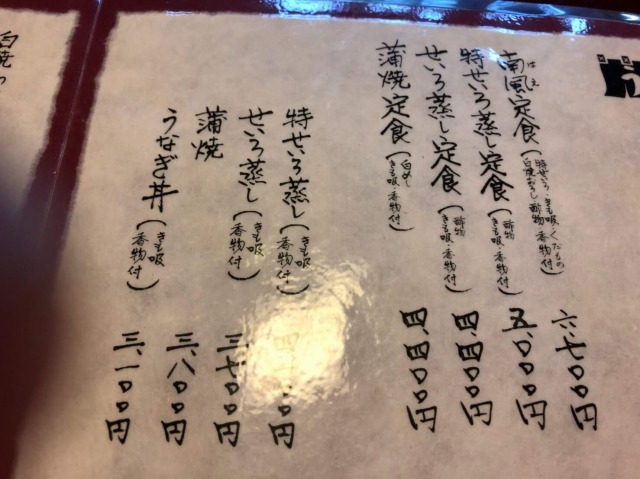 う
南風定食(特せいろ・きも吸・くだもの 白焼おろし 酢物 香物付) 六、七〇〇円
はえ
特せいろ蒸し定食(酢物 きも吸・香物付) 五、〇〇〇円
せいろ蒸し定食(酢物 きも吸・香物付) 四、四〇〇円
蒲焼定食(白めし きも吸・香物付) 四、四〇〇円
特せいろ蒸し(きも吸 香物付) 〇〇円
せいろ蒸し(きも吸 香物付) 三、七〇〇円
蒲焼 三、八〇〇円
うなぎ丼(きも吸 香物付) 三、一〇〇円
白焼